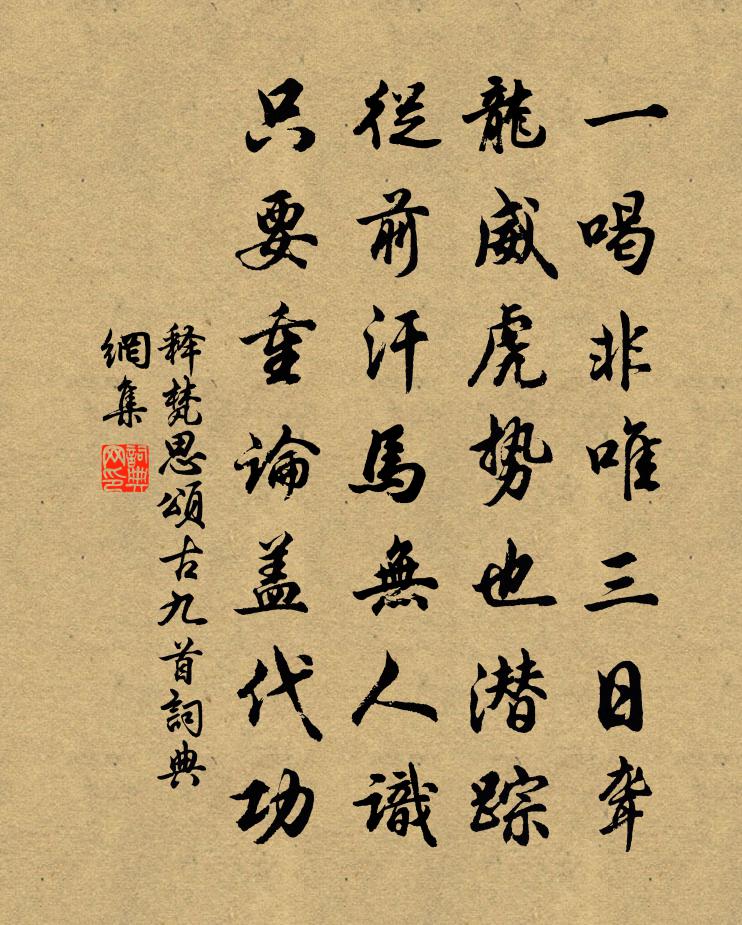 一喝非唯三日聋
龍威虎势也潜踪
從前汗馬無人識
只要重論盖代功
释梵思頌古九首詞典
網集
詞典網印